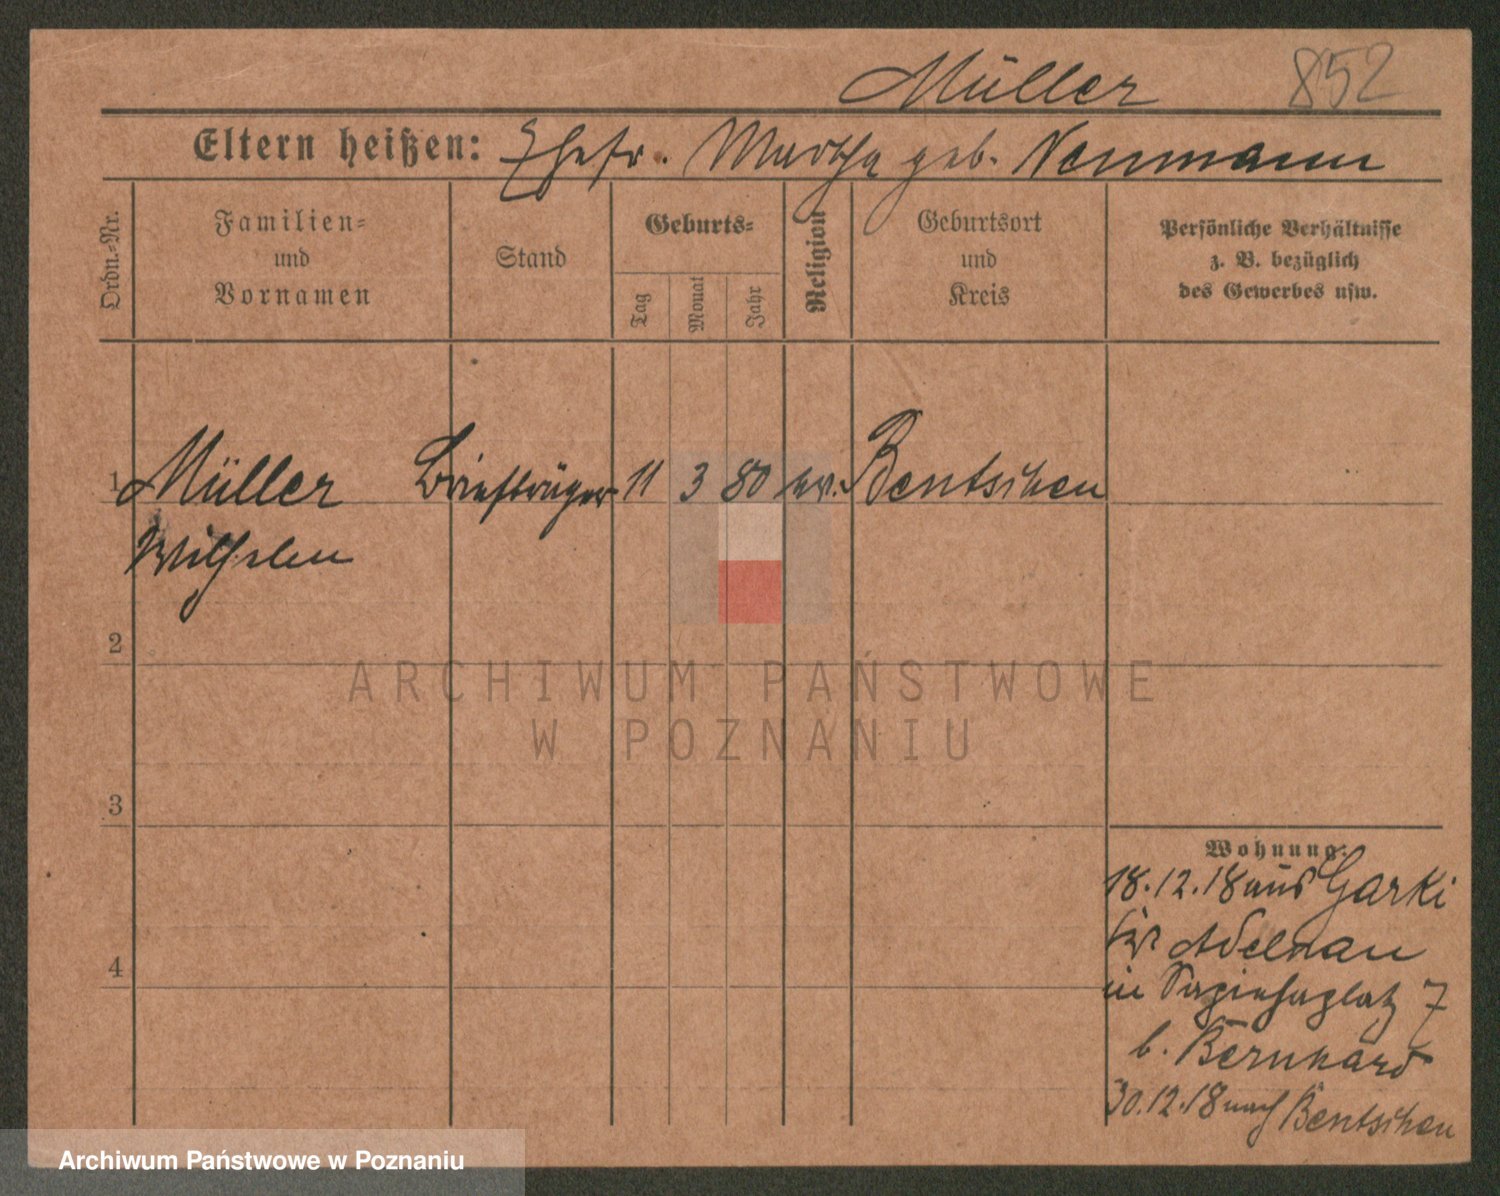 Müller 852
Eltern heißen: Ehefr. Martha geb. Neumann
Ordn.-Nr.
Familien-
und
Vornamen
Stand
Geburts-
Tag
Monat
Jahr
Religion
Geburtsort
und
Kreis
Persönliche Verhältnisse
z. B. bezüglich
des Gewerbes usw.
1 Müller Briefträger 11 3 80 ev. Bentschen
Wilhelm
2
3
4
Wohnung:
18.12.18 aus Garki
Kr. Adelnau
in Sapiehaplatz 7
b. Bernhard
30.12.18 nach Bentschen
ARCHIWUM PAŃSTWOWE
W POZNANIU
Archiwum Państwowe w Poznaniu